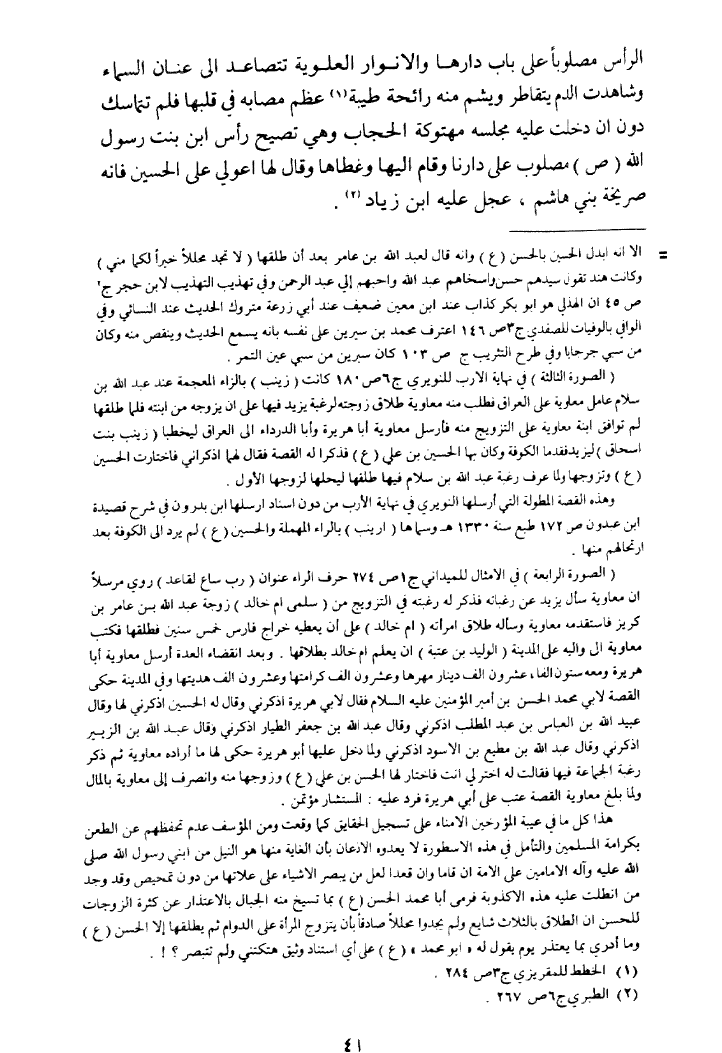 الرأس مصلوباً على باب دارها والانوار العلوية تتصاعد الى عنان السماء
وشاهدت الدم يتقاطر ويشم منه رائحة طيبة (١) عظم مصابه في قلبها فلم تتماسك
دون ان دخلت عليه مجلسه مهتوكة الحجاب وهي تصيح رأس ابن بنت رسول
الله ( ص ) مصلوب على دارنا وقام اليها وغطاها وقال لها اعولي على الحسين فانه
صريخة بني هاشم ، عجل عليه ابن زياد (٢) .
= الا انه ابدل الحسين بالحسن ( ع ) وانه قال لعبد الله بن عامر بعد أن طلقها ( لا تجد محللاً خيراً لكما مني )
وكانت هند تقول سيدهم حسن واسخاهم عبد الله واحبهم إلي عبد الرحمن وفي تهذيب التهذيب لابن حجر ج١
ص ٤٥ ان الهذلي هو ابو بكر كذاب عند ابن معين ضعيف عند أبي زرعة متروك الحديث عند النسائي وفي
الوافي بالوفيات للصفدي ج٣ ص ١٤٦ اعترف محمد بن سيرين على نفسه بانه يسمع الحديث وينقص منه وكان
من سبي جرجايا وفي طرح التثريب ج ص ١٠٣ كان سيرين من سبي عين التمر .
( الصورة الثالثة ) في نهاية الارب للنويري ج٦ ص ١٨٠ كانت ( زينب ) بالزاء المعجمة عند عبد الله بن
سلام عامل معاوية على العراق فطلب منه معاوية طلاق زوجته لرغبة يزيد فيها على ان يزوجه من ابنته فلما طلقها
لم توافق ابنة معاوية على التزويج منه فأرسل معاوية أبا هريرة وأبا الدرداء الى العراق ليخطبا ( زينب بنت
اسحاق ) ليزيد فقدما الكوفة وكان بها الحسين بن علي ( ع ) فذكرا له القصة فقال لهما اذكراني فاختارت الحسين
( ع ) وتزوجها ولما عرف رغبة عبد الله بن سلام فيها طلقها ليحلها لزوجها الأول .
وهذه القصة المطولة التي أرسلها النويري في نهاية الأرب من دون اسناد ارسلها ابن بدرون في شرح قصيدة
ابن عبدون ص ١٧٢ طبع سنة ١٣٣٠ هـ وسماها ( ارينب ) بالراء المهملة والحسين ( ع ) لم يرد الى الكوفة بعد
ارتحالهم منها .
( الصورة الرابعة ) في الامثال للميداني ج١ ص ٢٧٤ حرف الراء عنوان ( رب ساع لقاعد ) روي مرسلاً
ان معاوية سأل يزيد عن رغباته فذكر له رغبته في التزويج من ( سلمى ام خالد ) زوجة عبد الله بن عامر بن
كريز فاستقدمه معاوية وسأله طلاق امرأته ( ام خالد ) على أن يعطيه خراج فارس خمس سنين فطلقها فكتب
معاوية الى واليه على المدينة ( الوليد بن عتبة ) ان يعلم ام خالد بطلاقها . وبعد انقضاء العدة أرسل معاوية أبا
هريرة ومعه ستون الفا، عشرون الف دينار مهرها وعشرون الف كرامتها وعشرون الف هديتها وفي المدينة حكى
القصة لابي محمد الحسن بن أمير المؤمنين عليه السلام فقال لابي هريرة اذكرني وقال له الحسين اذكرني لها وقال
عبيد الله بن العباس بن عبد المطلب اذكرني وقال عبد الله بن جعفر الطيار اذكرني وقال عبد الله بن الزبير
اذكرني وقال عبد الله بن مطيع بن الاسود اذكرني ولما دخل عليها أبو هريرة حكى لها ما أراده معاوية ثم ذكر
رغبة الجماعة فيها فقالت له اختر لي انت فاختار لها الحسن بن علي ( ع ) وزوجها منه وانصرف إلى معاوية بالمال
ولما بلغ معاوية القصة عتب على أبي هريرة فرد عليه : المستشار مؤتمن .
هذا كل ما في عيبة المؤرخين الامناء على تسجيل الحقايق كما وقعت ومن المؤسف عدم تحفظهم عن الطعن
بكرامة المسلمين والتأمل في هذه الاسطورة لا يعدوه الاذعان بأن الغاية منها هو النيل من ابني رسول الله صلى
الله عليه وآله الامامين على الامة ان قاما وان قعدا لعل من يبصر الاشياء على علاتها من دون تمحيص وقد وجد
من انطلت عليه هذه الاكذوبة فرمى أبا محمد الحسن ( ع ) بما تسيخ منه الجبال بالاعتذار عن كثرة الزوجات
للحسن ان الطلاق بالثلاث شايع ولم يجدوا محللاً صادقاً بأن يتزوج المرأة على الدوام ثم يطلقها إلا الحسن ( ع )
وما أدري بما يعتذر يوم يقول له « ابو محمد » ( ع ) على أي استناد وثيق هتكتني ولم تتبصر ؟ ! .
(١) الخطط للمقريزي ج٣ ص ٢٨٤ .
(٢) الطبري ج٦ ص ٢٦٧ .
٤١